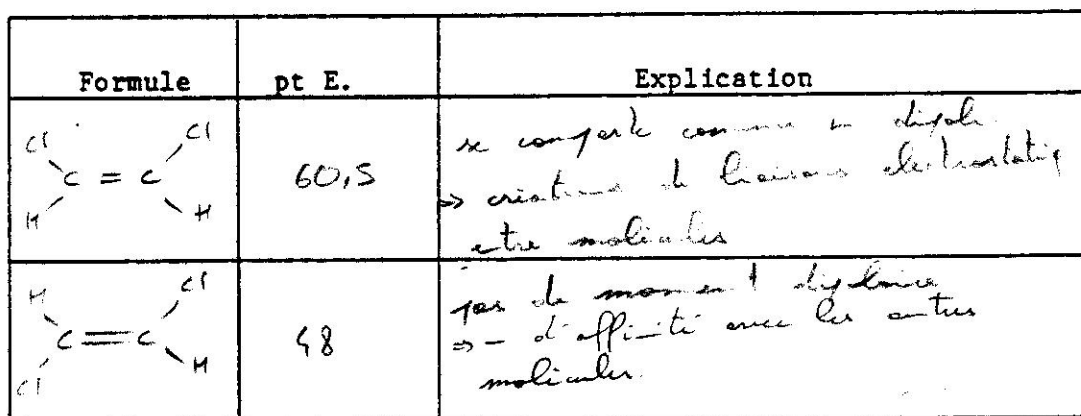 Formule pt E. Explication
Cl Cl
C = C
H H
60,5
se comporte comme un dipole
=> créations de liaisons electrostatiq
entre molécules
H Cl
C = C
Cl H
48
pas de moment dipolaire
=> - d'affinité avec les autres
molécules.